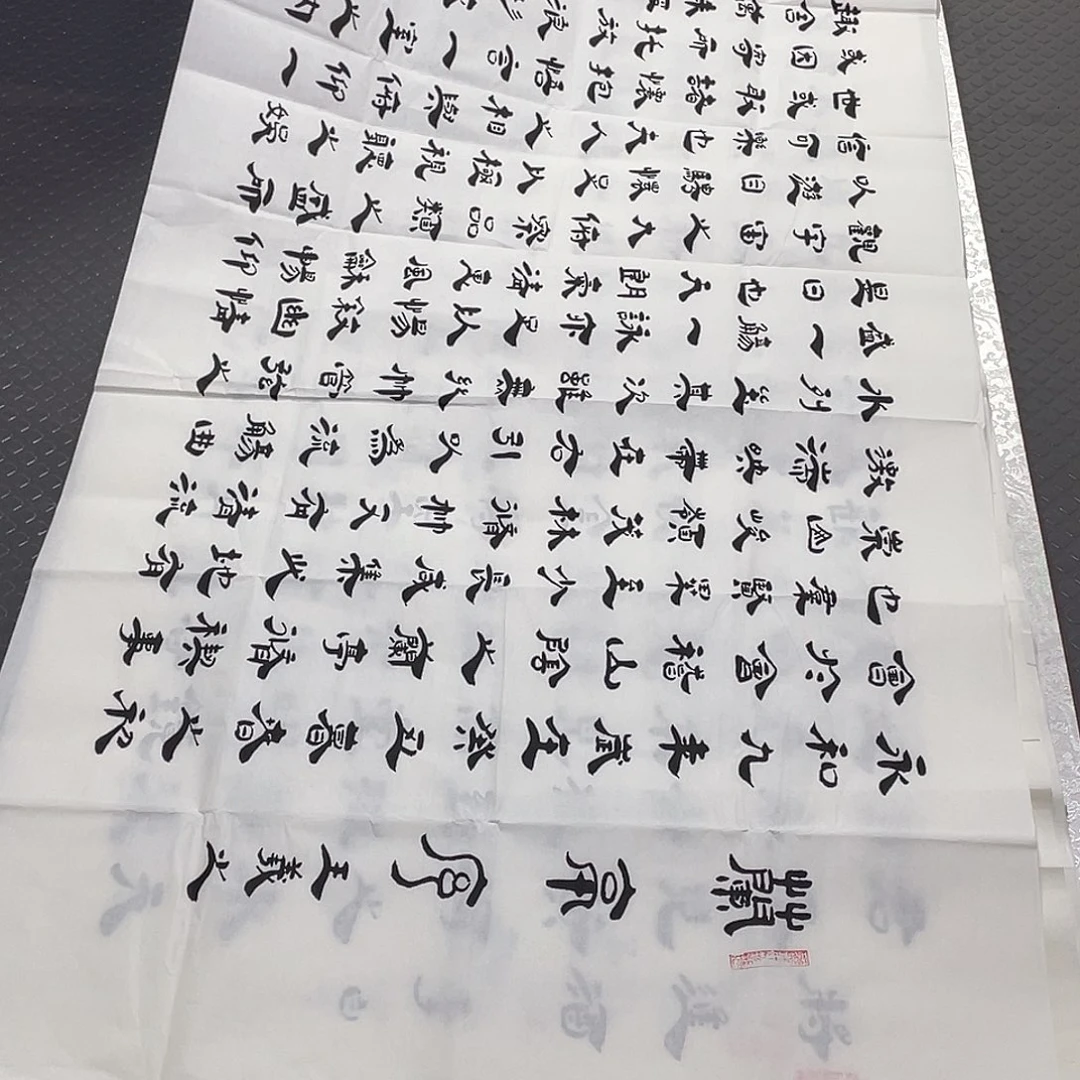 蘭亭序王羲之
永和九年歲在癸丑暮春之初
會於會稽山陰之蘭亭脩禊事
也羣賢畢至少長咸集此地有
崇山峻領茂林脩竹又有清流
激湍映帶左右引以為流觴曲
水列坐其次雖無絲竹管弦之
盛一觴一詠亦足以暢敘幽情
是日也天朗氣清惠風和暢仰
觀宇宙之大俯察品類之盛所
以遊目騁懷足以極視聽之娛
信可樂也夫人之相與俯仰一
世或取諸懷抱悟言一室之內
或因寄所託放浪形